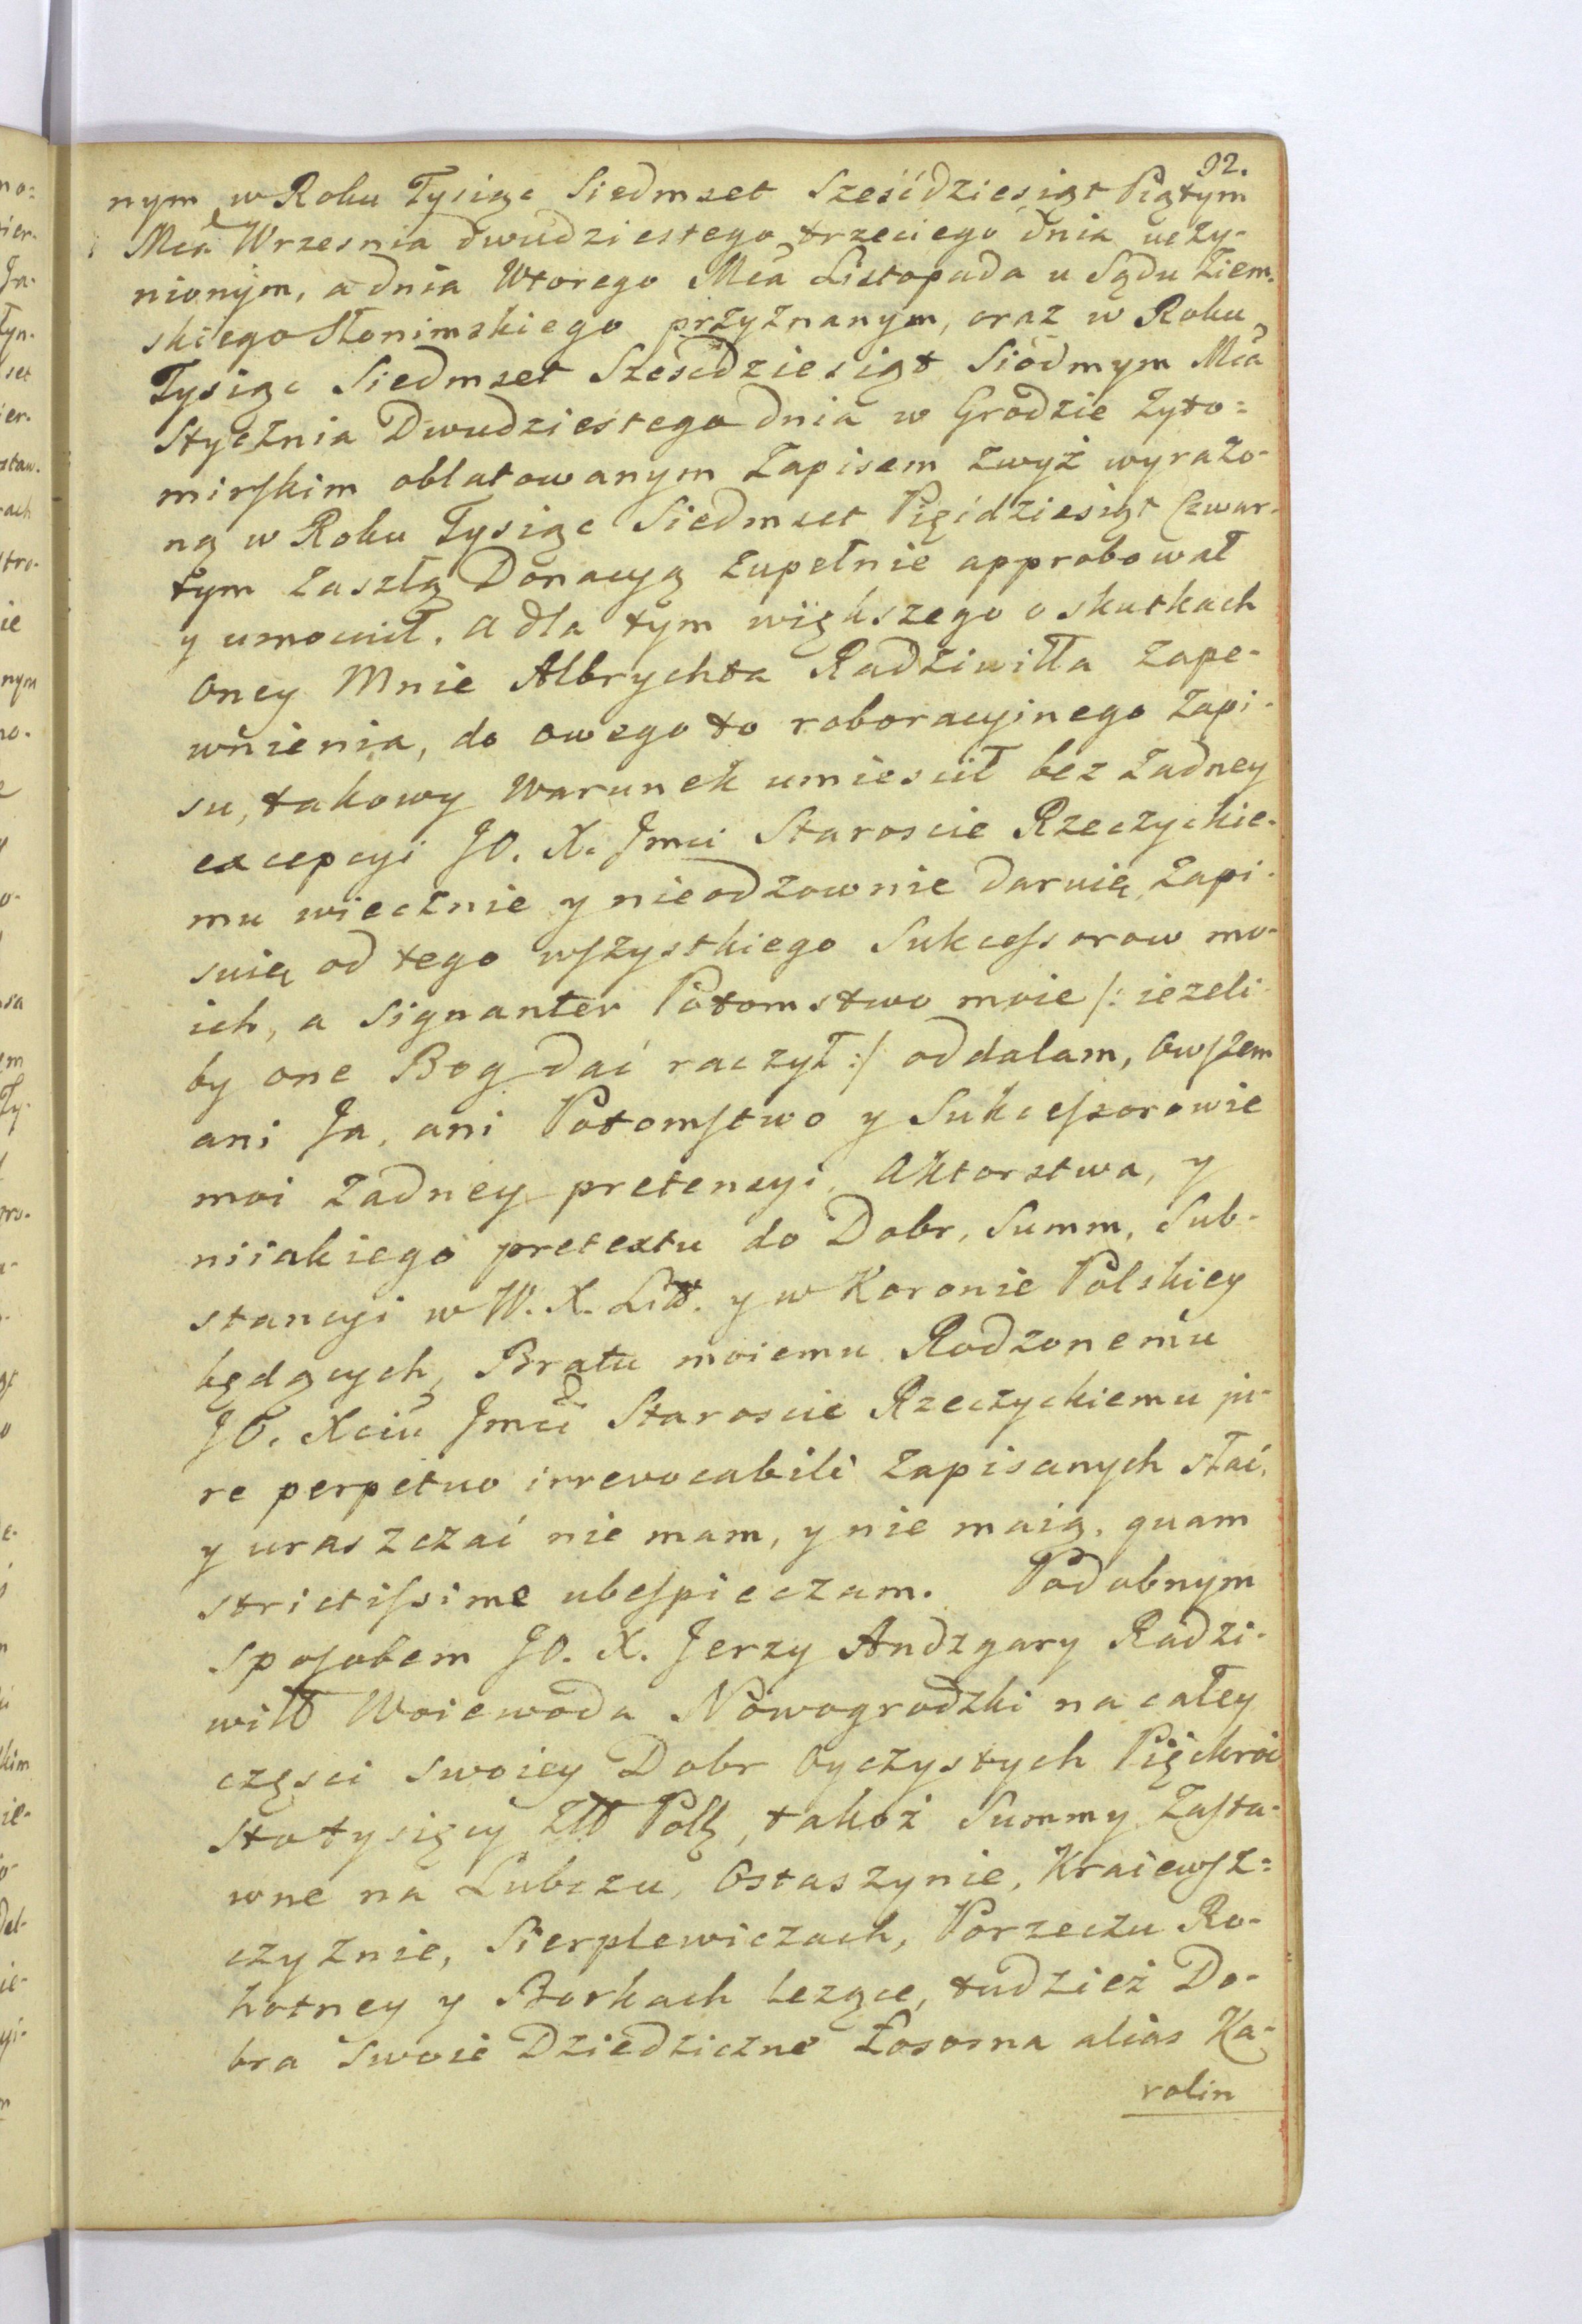 92.
nym w Roku Tysiąc Siedmset Sześćdziesiąt Piątym
Mca Wrzesnia dwudziestego trzeciego dnia uczy-
nionym, a dnia Wtorego Mca Listopada u Sądu Ziem-
skiego Słonimskiego przyznanym, oraz w Roku
Tysiąc Siedmset Szescdziesiąt Siodmym Mca
Stycznia Dwudziestego dnia w Grodzie Zyto=
mirskim oblatowanym Zapisem zwyż wyrażo-
ną w Roku Tysiąc Siedmset Pięćdziesiąt Czwar-
tym zaszłą Donacyą zupełnie approbował
y umocnił. a dla tym większego o skutkach
oney Mnie Albrychta Radziwiłła zape-
wnienia, do owego to roboracyinego zapi-
su, takowy Warunek umiescił bez żadney
excepcyi JO. X. Jmci Staroscie Rzeczyckie-
mu wiecznie y nieodzownie daruię, zapi-
suię od tego wszystkiego Sukcessorow mo-
ich, a signanter Potomstwo moie /: iezeli-
by one Bog dać raczył :/ oddalam, Owszem
ani Ja, ani Potomstwo y Sukcessorowie
moi żadney pretensyi, Aktorstwa, y
niiakiego pretextu do Dobr, Summ, Sub-
stancyi w W. X. Litt. y w Koronie Polskiey
będących, Bratu moiemu Rodzonemu
JO. Xciu Jmci Staroscie Rzeczyckiemu ju-
re perpetuo irrevocabili zapisanych słać,
y uraszczać nie mam, y nie maią, quam
strictissime ubespieczam. Podobnym
sposobem JO. X. Jerzy Andzgary Radzi-
wiłł Woiewoda Nowogrodzki na całey
częsci swoiey Dobr Oyczystych Pięćkroć
Stotysięcy Złł Polł, takoż Summy Zasta-
wne na Lubczu, Ostaszynie, Kraiewsz=
czyznie, Sierplewiczach, Porzeczu Ro-
hotney y Borkach leżące, tudzież Do-
bra swoie Dziedziczne Łososna alias Ka-
rolin